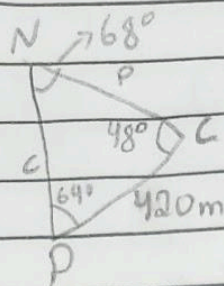 N 68°
p
48° C
c
64° 420m
D